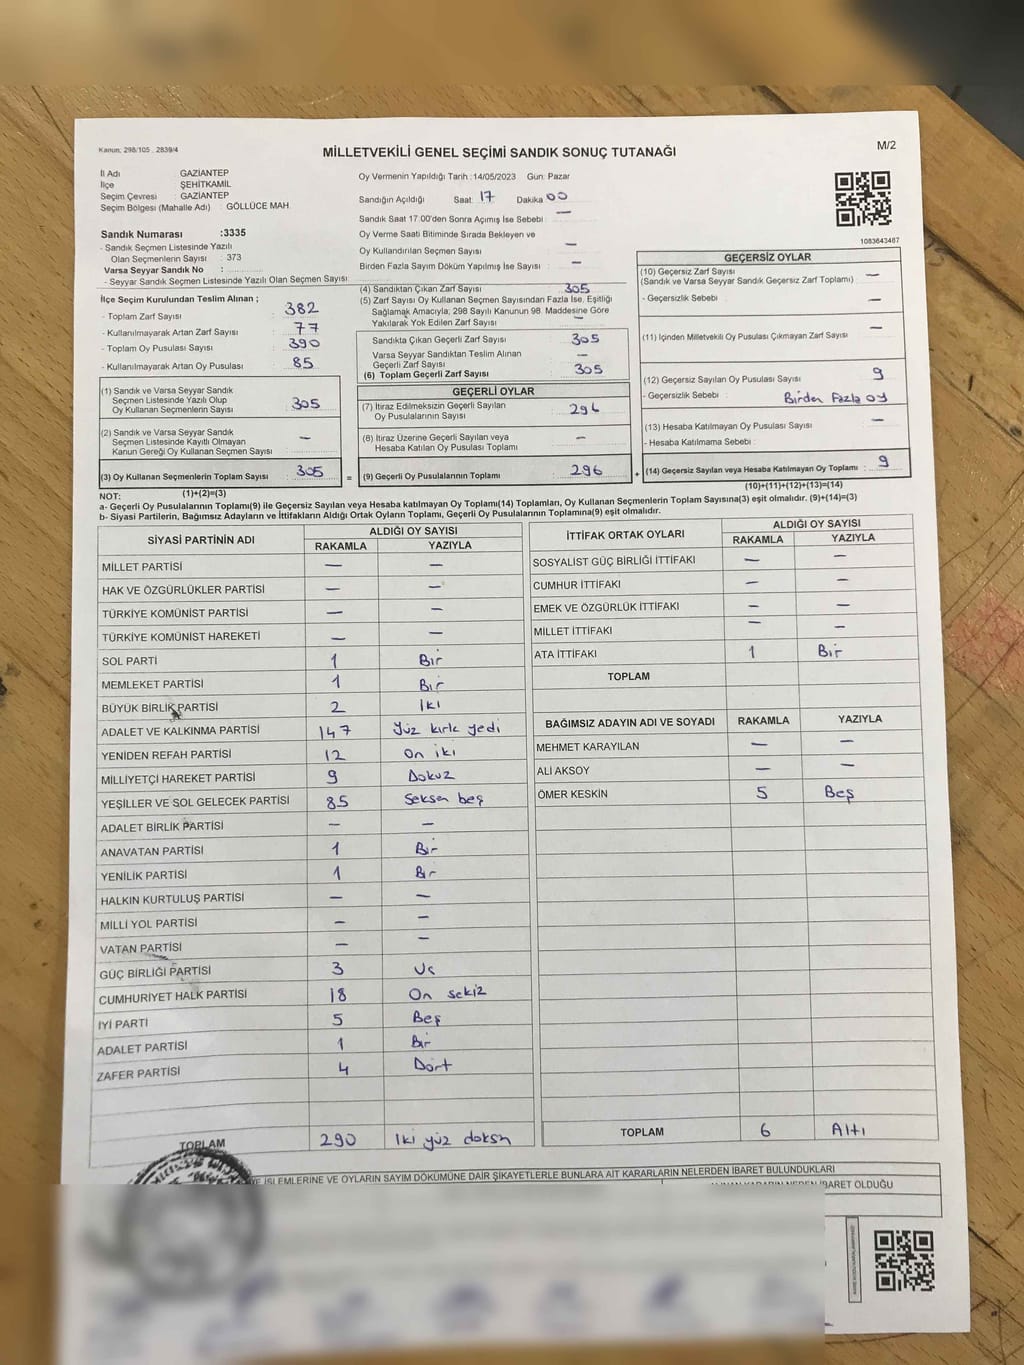 Kanun; 298/105 , 2839/4
MİLLETVEKİLİ GENEL SEÇİMİ SANDIK SONUÇ TUTANAĞI
M/2
İl Adı GAZİANTEP
İlçe ŞEHİTKAMİL
Seçim Çevresi : GAZİANTEP
Seçim Bölgesi (Mahalle Adı) : GÖLLÜCE MAH.
Sandık Numarası :3335
- Sandık Seçmen Listesinde Yazılı
Olan Seçmenlerin Sayısı : 373
Varsa Seyyar Sandık No :
- Seyyar Sandık Seçmen Listesinde Yazılı Olan Seçmen Sayısı
İlçe Seçim Kurulundan Teslim Alınan ;
- Toplam Zarf Sayısı : 382
- Kullanılmayarak Artan Zarf Sayısı : 77
- Toplam Oy Pusulası Sayısı : 390
- Kullanılmayarak Artan Oy Pusulası : 85
(1) Sandık ve Varsa Seyyar Sandık
Seçmen Listesinde Yazılı Olup
Oy Kullanan Seçmenlerin Sayısı : 305
(2) Sandık ve Varsa Seyyar Sandık
Seçmen Listesinde Kayıtlı Olmayan
Kanun Gereği Oy Kullanan Seçmen Sayısı : —
(3) Oy Kullanan Seçmenlerin Toplam Sayısı : 305
Oy Vermenin Yapıldığı Tarih :14/05/2023 Gün: Pazar
Sandığın Açıldığı Saat: 17 Dakika 00
Sandık Saat 17:00'den Sonra Açımış İse Sebebi : —
Oy Verme Saati Bitiminde Sırada Bekleyen ve
Oy Kullandırılan Seçmen Sayısı —
Birden Fazla Sayım Döküm Yapılmış İse Sayısı : —
(4) Sandıktan Çıkan Zarf Sayısı : 305
(5) Zarf Sayısı Oy Kullanan Seçmen Sayısından Fazla İse, Eşitliği
Sağlamak Amacıyla; 298 Sayılı Kanunun 98. Maddesine Göre
Yakılarak Yok Edilen Zarf Sayısı : —
Sandıkta Çıkan Geçerli Zarf Sayısı : 305
Varsa Seyyar Sandıktan Teslim Alınan
Geçerli Zarf Sayısı : —
(6) Toplam Geçerli Zarf Sayısı : 305
GEÇERLİ OYLAR
(7) İtiraz Edilmeksizin Geçerli Sayılan
Oy Pusulalarının Sayısı : 296
(8) İtiraz Üzerine Geçerli Sayılan veya
Hesaba Katılan Oy Pusulası Toplamı : —
= (9) Geçerli Oy Pusulalarının Toplamı : 296
1083643467
GEÇERSİZ OYLAR
(10) Geçersiz Zarf Sayısı
(Sandık ve Varsa Seyyar Sandık Geçersiz Zarf Toplamı) —
- Geçersizlik Sebebi : —
(11) İçinden Milletvekili Oy Pusulası Çıkmayan Zarf Sayısı : —
(12) Geçersiz Sayılan Oy Pusulası Sayısı : 9
- Geçersizlik Sebebi : Birden Fazla oy
(13) Hesaba Katılmayan Oy Pusulası Sayısı : —
- Hesaba Katılmama Sebebi :
+ (14) Geçersiz Sayılan veya Hesaba Katılmayan Oy Toplamı : 9
NOT: (1)+(2)=(3) (10)+(11)+(12)+(13)=(14)
a- Geçerli Oy Pusulalarının Toplamı(9) ile Geçersiz Sayılan veya Hesaba katılmayan Oy Toplamı(14) Toplamları, Oy Kullanan Seçmenlerin Toplam Sayısına(3) eşit olmalıdır. (9)+(14)=(3)
b- Siyasi Partilerin, Bağımsız Adayların ve İttifakların Aldığı Ortak Oyların Toplamı, Geçerli Oy Pusulalarının Toplamına(9) eşit olmalıdır.
SİYASİ PARTİNİN ADI ALDIĞI OY SAYISI
RAKAMLA YAZIYLA
MİLLET PARTİSİ — —
HAK VE ÖZGÜRLÜKLER PARTİSİ — —
TÜRKİYE KOMÜNİST PARTİSİ — —
TÜRKİYE KOMÜNİST HAREKETİ — —
SOL PARTİ 1 Bir
MEMLEKET PARTİSİ 1 Bir
BÜYÜK BİRLİK PARTİSİ 2 İki
ADALET VE KALKINMA PARTİSİ 147 Yüz kırk yedi
YENİDEN REFAH PARTİSİ 12 On iki
MİLLİYETÇİ HAREKET PARTİSİ 9 Dokuz
YEŞİLLER VE SOL GELECEK PARTİSİ 85 Seksen beş
ADALET BİRLİK PARTİSİ — —
ANAVATAN PARTİSİ 1 Bir
YENİLİK PARTİSİ 1 Bir
HALKIN KURTULUŞ PARTİSİ — —
MİLLİ YOL PARTİSİ — —
VATAN PARTİSİ — —
GÜÇ BİRLİĞİ PARTİSİ 3 Üç
CUMHURİYET HALK PARTİSİ 18 On sekiz
İYİ PARTİ 5 Beş
ADALET PARTİSİ 1 Bir
ZAFER PARTİSİ 4 Dört
TOPLAM 290 İki yüz doksn
İTTİFAK ORTAK OYLARI ALDIĞI OY SAYISI
RAKAMLA YAZIYLA
SOSYALİST GÜÇ BİRLİĞİ İTTİFAKI — —
CUMHUR İTTİFAKI — —
EMEK VE ÖZGÜRLÜK İTTİFAKI — —
MİLLET İTTİFAKI — —
ATA İTTİFAKI 1 Bir
TOPLAM
BAĞIMSIZ ADAYIN ADI VE SOYADI RAKAMLA YAZIYLA
MEHMET KARAYILAN — —
ALİ AKSOY — —
ÖMER KESKİN 5 Beş
TOPLAM 6 Altı
İŞLEMLERİNE VE OYLARIN SAYIM DÖKÜMÜNE DAİR ŞİKAYETLERLE BUNLARA AİT KARARLARIN NELERDEN İBARET BULUNDUKLARI
İBARET OLDUĞU